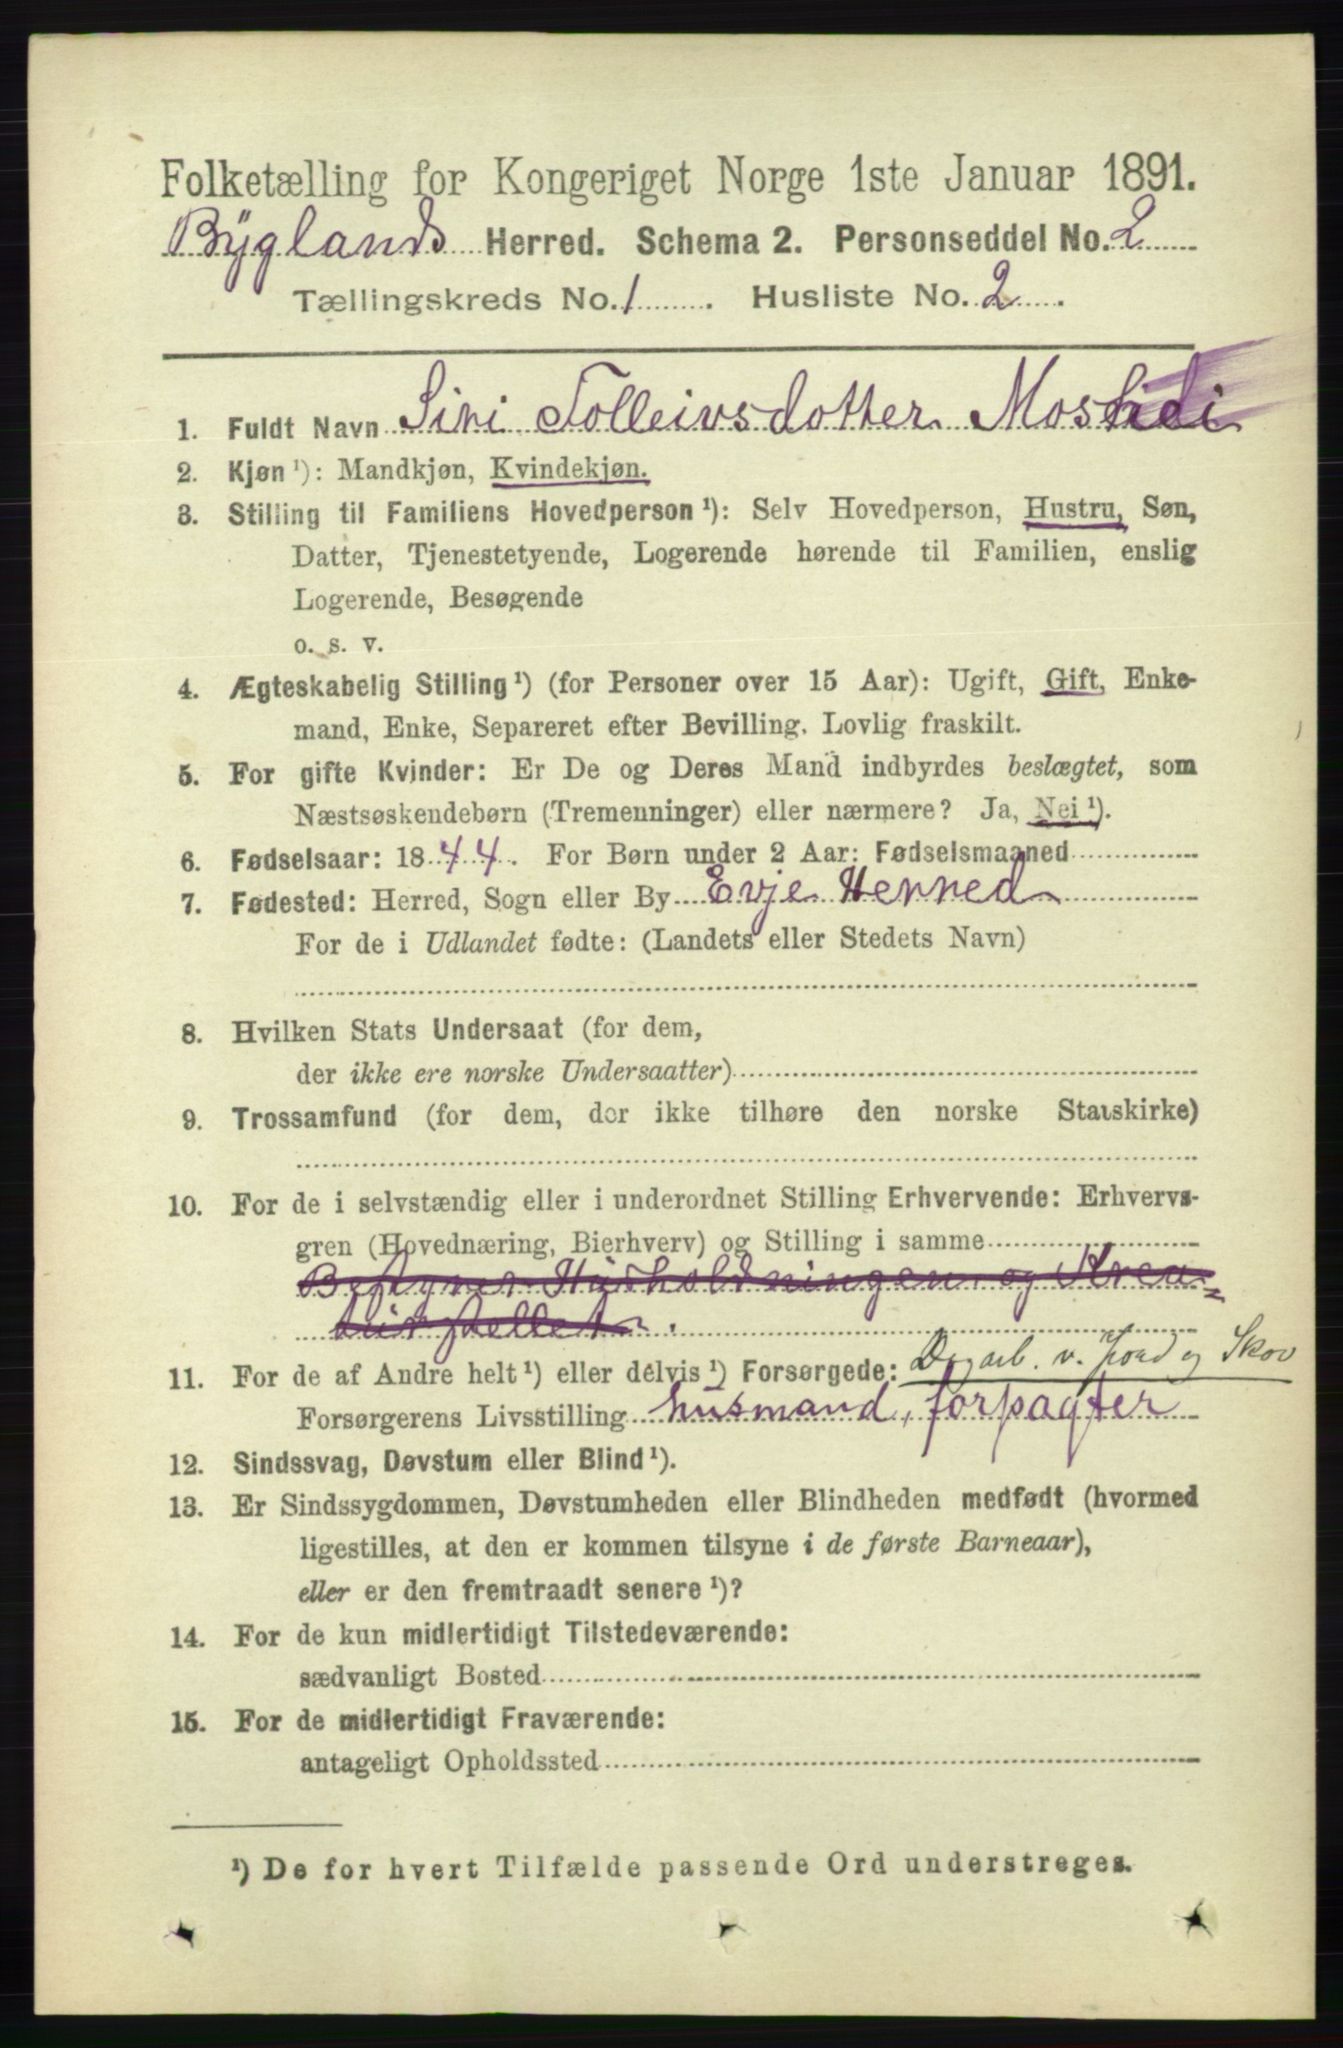 Folketælling for Kongeriget Norge 1ste Januar 1891.
Byglands Herred. Schema 2. Personseddel No. 2
Tællingskreds No. 1. Husliste No. 2.
1. Fuldt Navn Siri Tolleivsdotter Moshedi
2. Kjøn ¹): Mandkjøn, Kvindekjøn.
3. Stilling til Familiens Hovedperson ¹): Selv Hovedperson, Hustru, Søn,
Datter, Tjenestetyende, Logerende hørende til Familien, enslig
Logerende, Besøgende
o. s. v.
4. Ægteskabelig Stilling ¹) (for Personer over 15 Aar): Ugift, Gift, Enke-
mand, Enke, Separeret efter Bevilling. Lovlig fraskilt.
5. For gifte Kvinder: Er De og Deres Mand indbyrdes beslægtet, som
Næstsøskendebørn (Tremenninger) eller nærmere? Ja, Nei ¹).
6. Fødselsaar: 1844. For Børn under 2 Aar: Fødselsmaaned
7. Fødested: Herred, Sogn eller By Evje Herred
For de i Udlandet fødte: (Landets eller Stedets Navn)
8. Hvilken Stats Undersaat (for dem,
der ikke ere norske Undersaatter)
9. Trossamfund (for dem, der ikke tilhøre den norske Statskirke)
10. For de i selvstændig eller i underordnet Stilling Erhvervende: Erhvervs-
gren (Hovednæring, Bierhverv) og Stilling i samme
Bestyrer Husholdningen og Krea=
turstellet.
11. For de af Andre helt ¹) eller delvis ¹) Forsørgede: Dagarb. v. Jord og Skov
Forsørgerens Livsstilling husmand, forpagter
12. Sindssvag, Døvstum eller Blind ¹).
13. Er Sindssygdommen, Døvstumheden eller Blindheden medfødt (hvormed
ligestilles, at den er kommen tilsyne i de første Barneaar),
eller er den fremtraadt senere ¹)?
14. For de kun midlertidigt Tilstedeværende:
sædvanligt Bosted
15. For de midlertidigt Fraværende:
antageligt Opholdssted
¹) De for hvert Tilfælde passende Ord understreges.